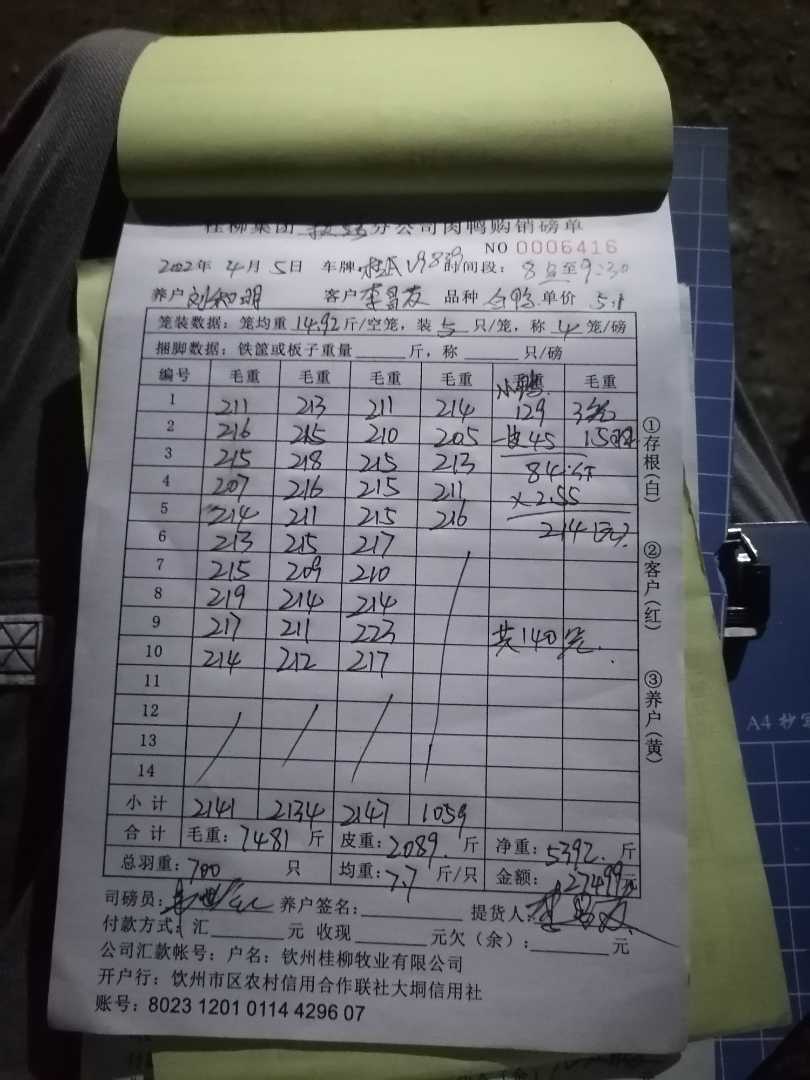 桂柳集团 分公司肉鸭购销磅单
NO 0006416
2022年 4月 5日 车牌: 时间段: 8点至9:30
养户 刘和明 客户 李昌友 品种 单价 5.1
笼装数据: 笼均重 14.92 斤/空笼, 装 5 只/笼, 称 4 笼/磅
捆脚数据: 铁筐或板子重量 斤, 称 只/磅
编号 毛重 毛重 毛重 毛重 毛重
1 211 213 211 214 129 3
2 216 215 210 205 45 15
3 215 218 215 213 84斤
4 207 216 215 211 ×2.55
5 214 211 215 216 214
6 213 215 217
7 215 209 210
8 219 214 214
9 217 211 223 共140笼.
10 214 212 217
11
12
13
14
小计 2141 2134 2147 1059
合计 毛重: 7481 斤 皮重: 2089. 斤 净重: 5392. 斤
总羽重: 700 只 均重: 7.7 斤/只 金额: 27499元
司磅员: 养户签名: 提货人:
付款方式: 汇 元 收现 元欠(余): 元
公司汇款帐号: 户名: 钦州桂柳牧业有限公司
开户行: 钦州市区农村信用合作联社大垌信用社
账号: 8023 1201 0114 4296 07
①存根(白)
②客户(红)
③养户(黄)
A4